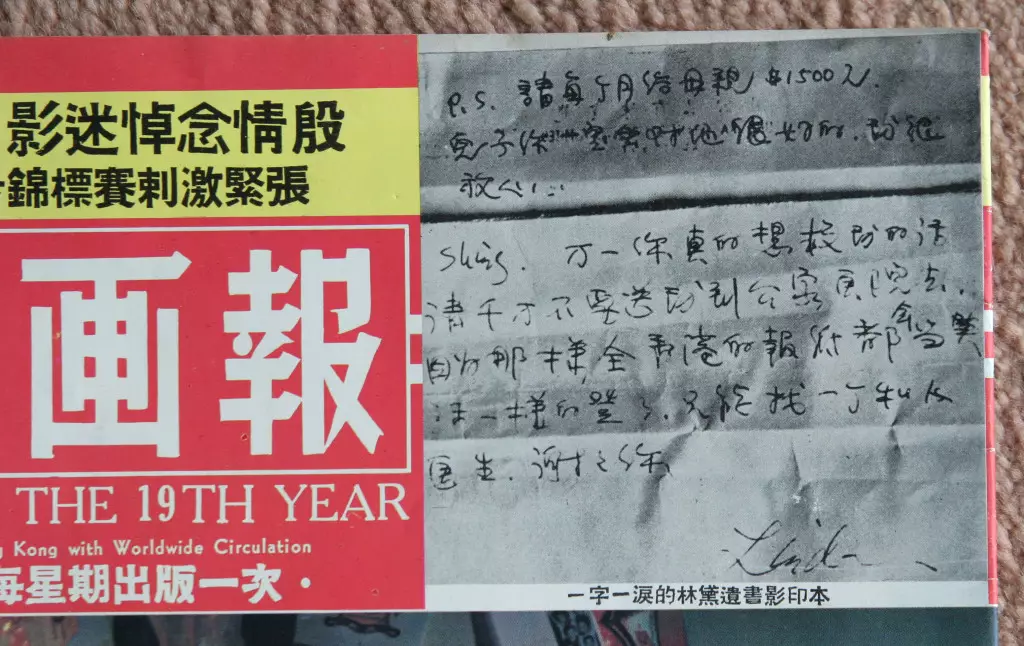 影迷悼念情殷
錦標賽刺激緊張
画報
THE 19TH YEAR
Kong with Worldwide Circulation
每星期出版一次·
P.S. 請每个月给母親 $1500元.
兒子你 他很好的.
救心
Shing. 万一你真的想救我的话
请千万不要送我到公家医院去.
因为那样全香港的報紙都会当笑
话一样的登了.只能找一个私人
医生.谢谢你
Linda
一字一淚的林黛遺書影印本